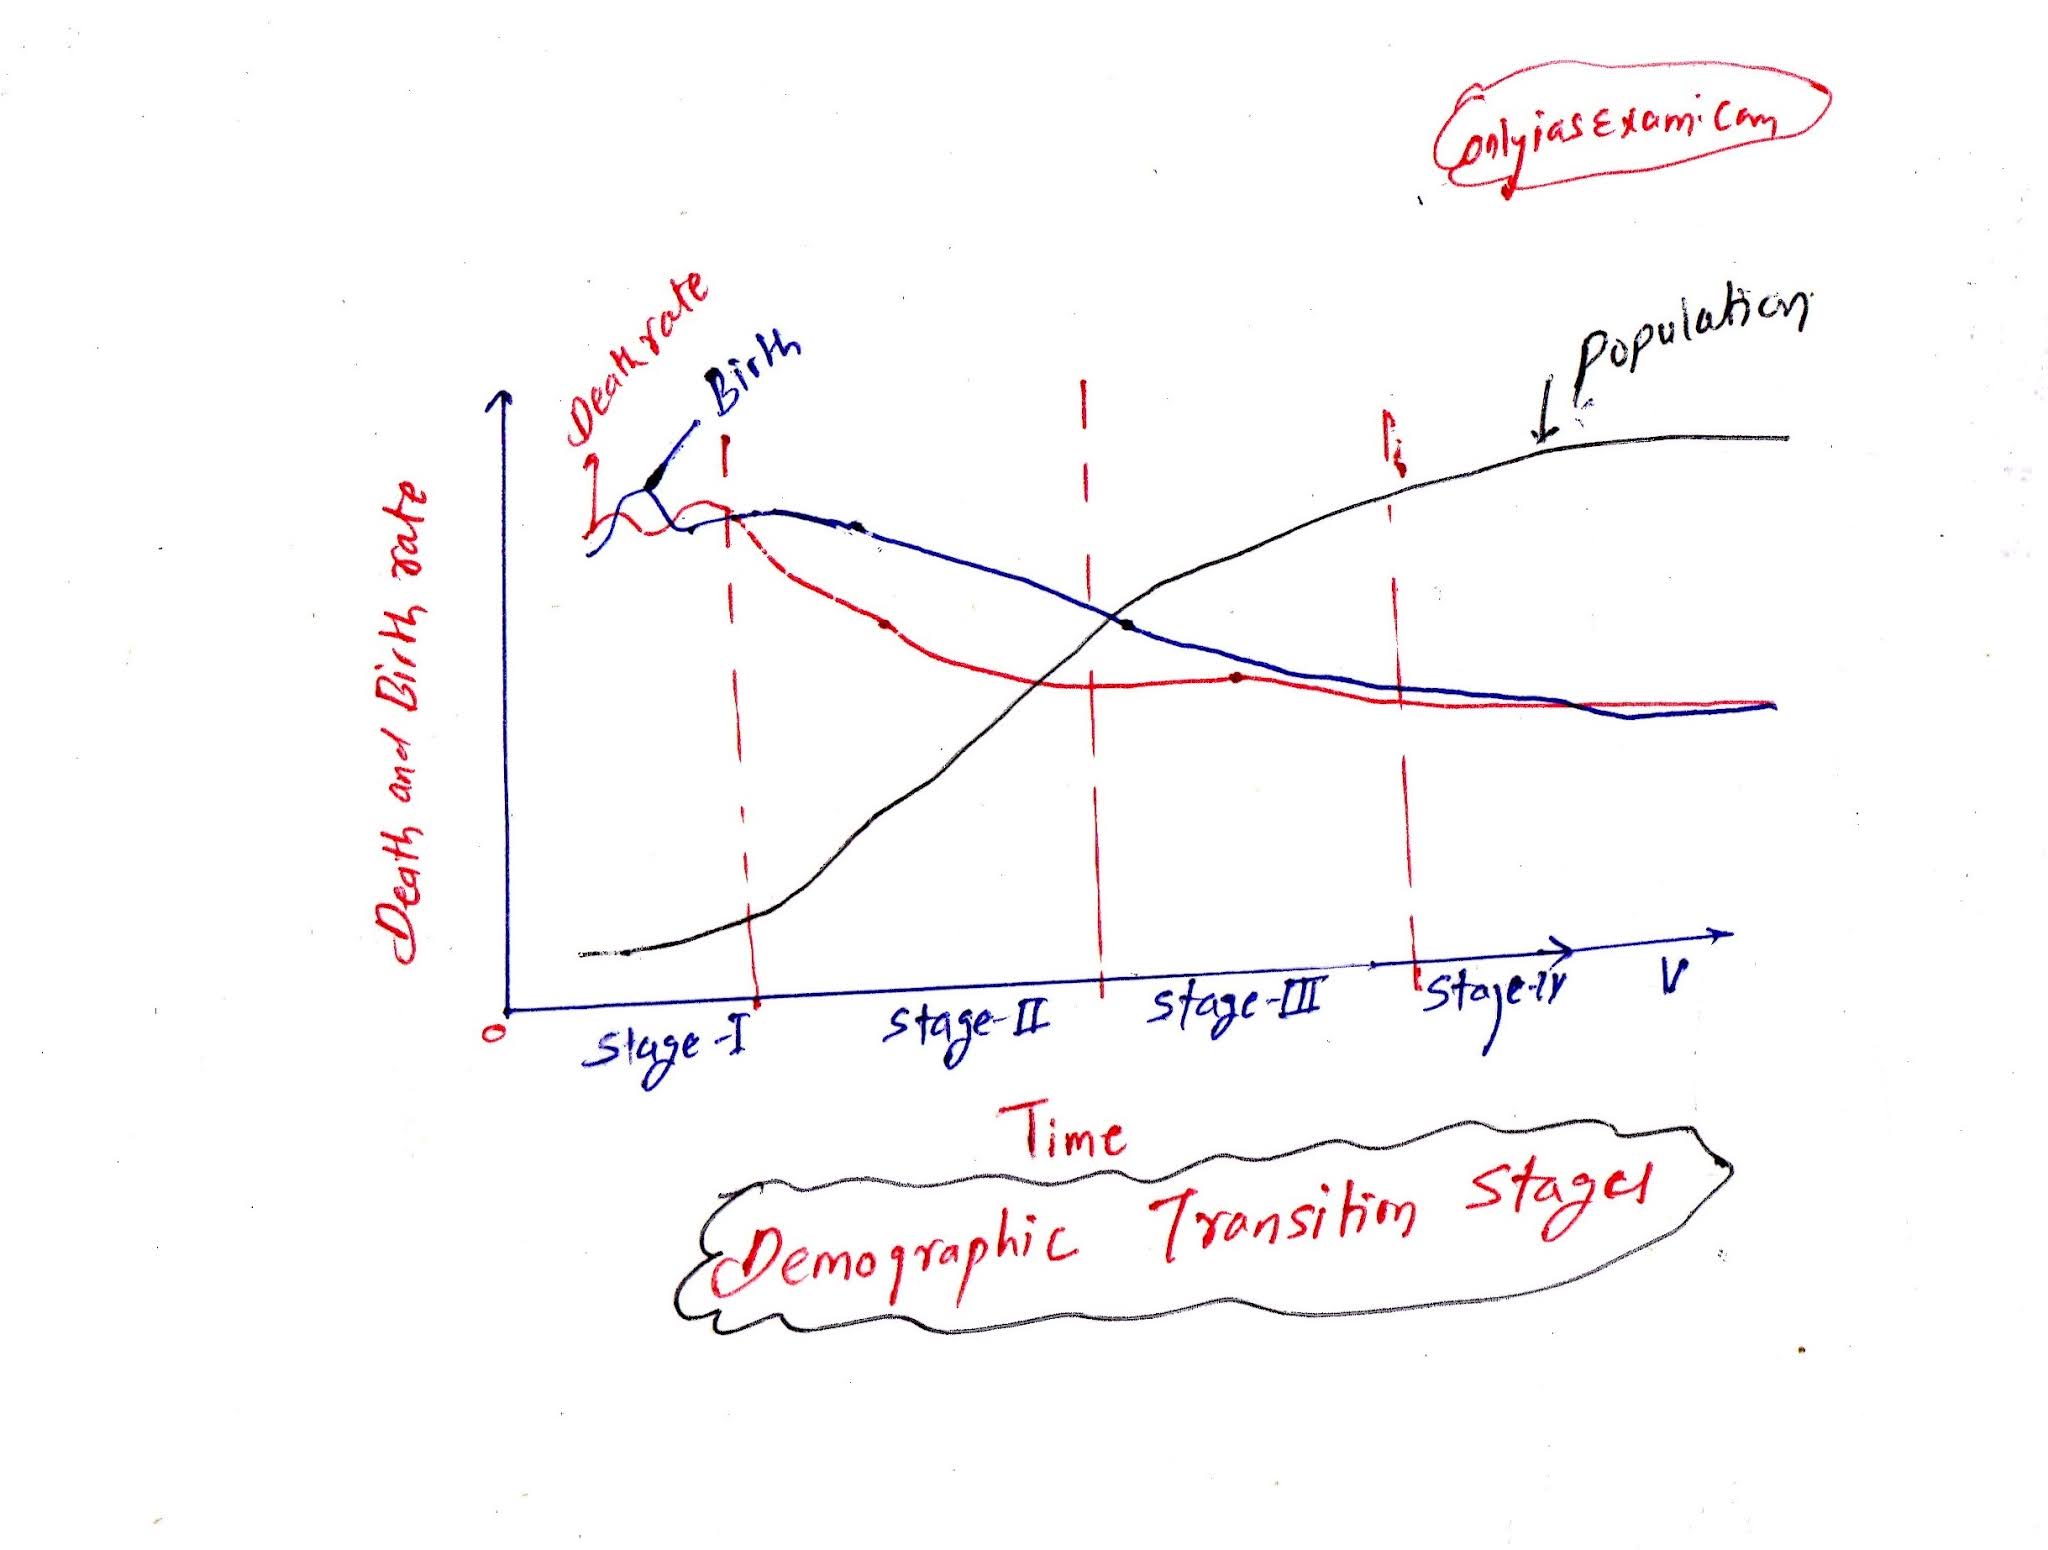 onlyiasExam.com
Death rate
Birth
Population
Death and Birth rate
0
Stage-I
Stage-II
Stage-III
Stage-IV
V
Time
Demographic Transition Stages